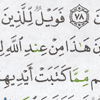 ٧٨ فَوَيْلٌ لِّلَّذِينَ
هَٰذَا مِنْ عِندِ اللَّهِ
مِّمَّا كَتَبَتْ أَيْدِيهِمْ